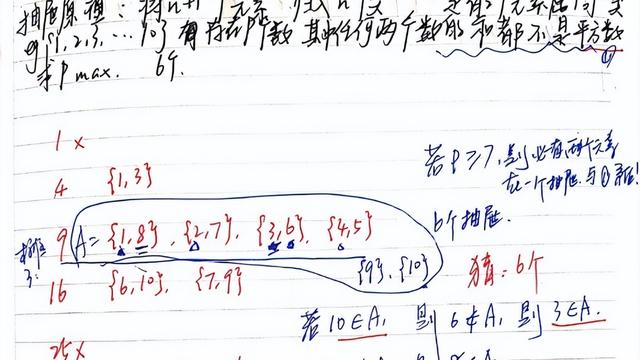 抽屉原理：将n+1个元素
eg {1,2,3,…10}有存在P个数 其中任何两个数的和都不是平方数 ①
求Pmax. 6个.
1 ×
4 {1,3}
若P≥7,则必有两个元素
在一个抽屉.与①矛盾!
6个抽屉.
9 A={1,8},{2,7},{3,6},{4,5}
{9}.{10}
16 {6,10},{7,9}
猜:6个
若10∈A, 则6∉A,则3∈A.
25×